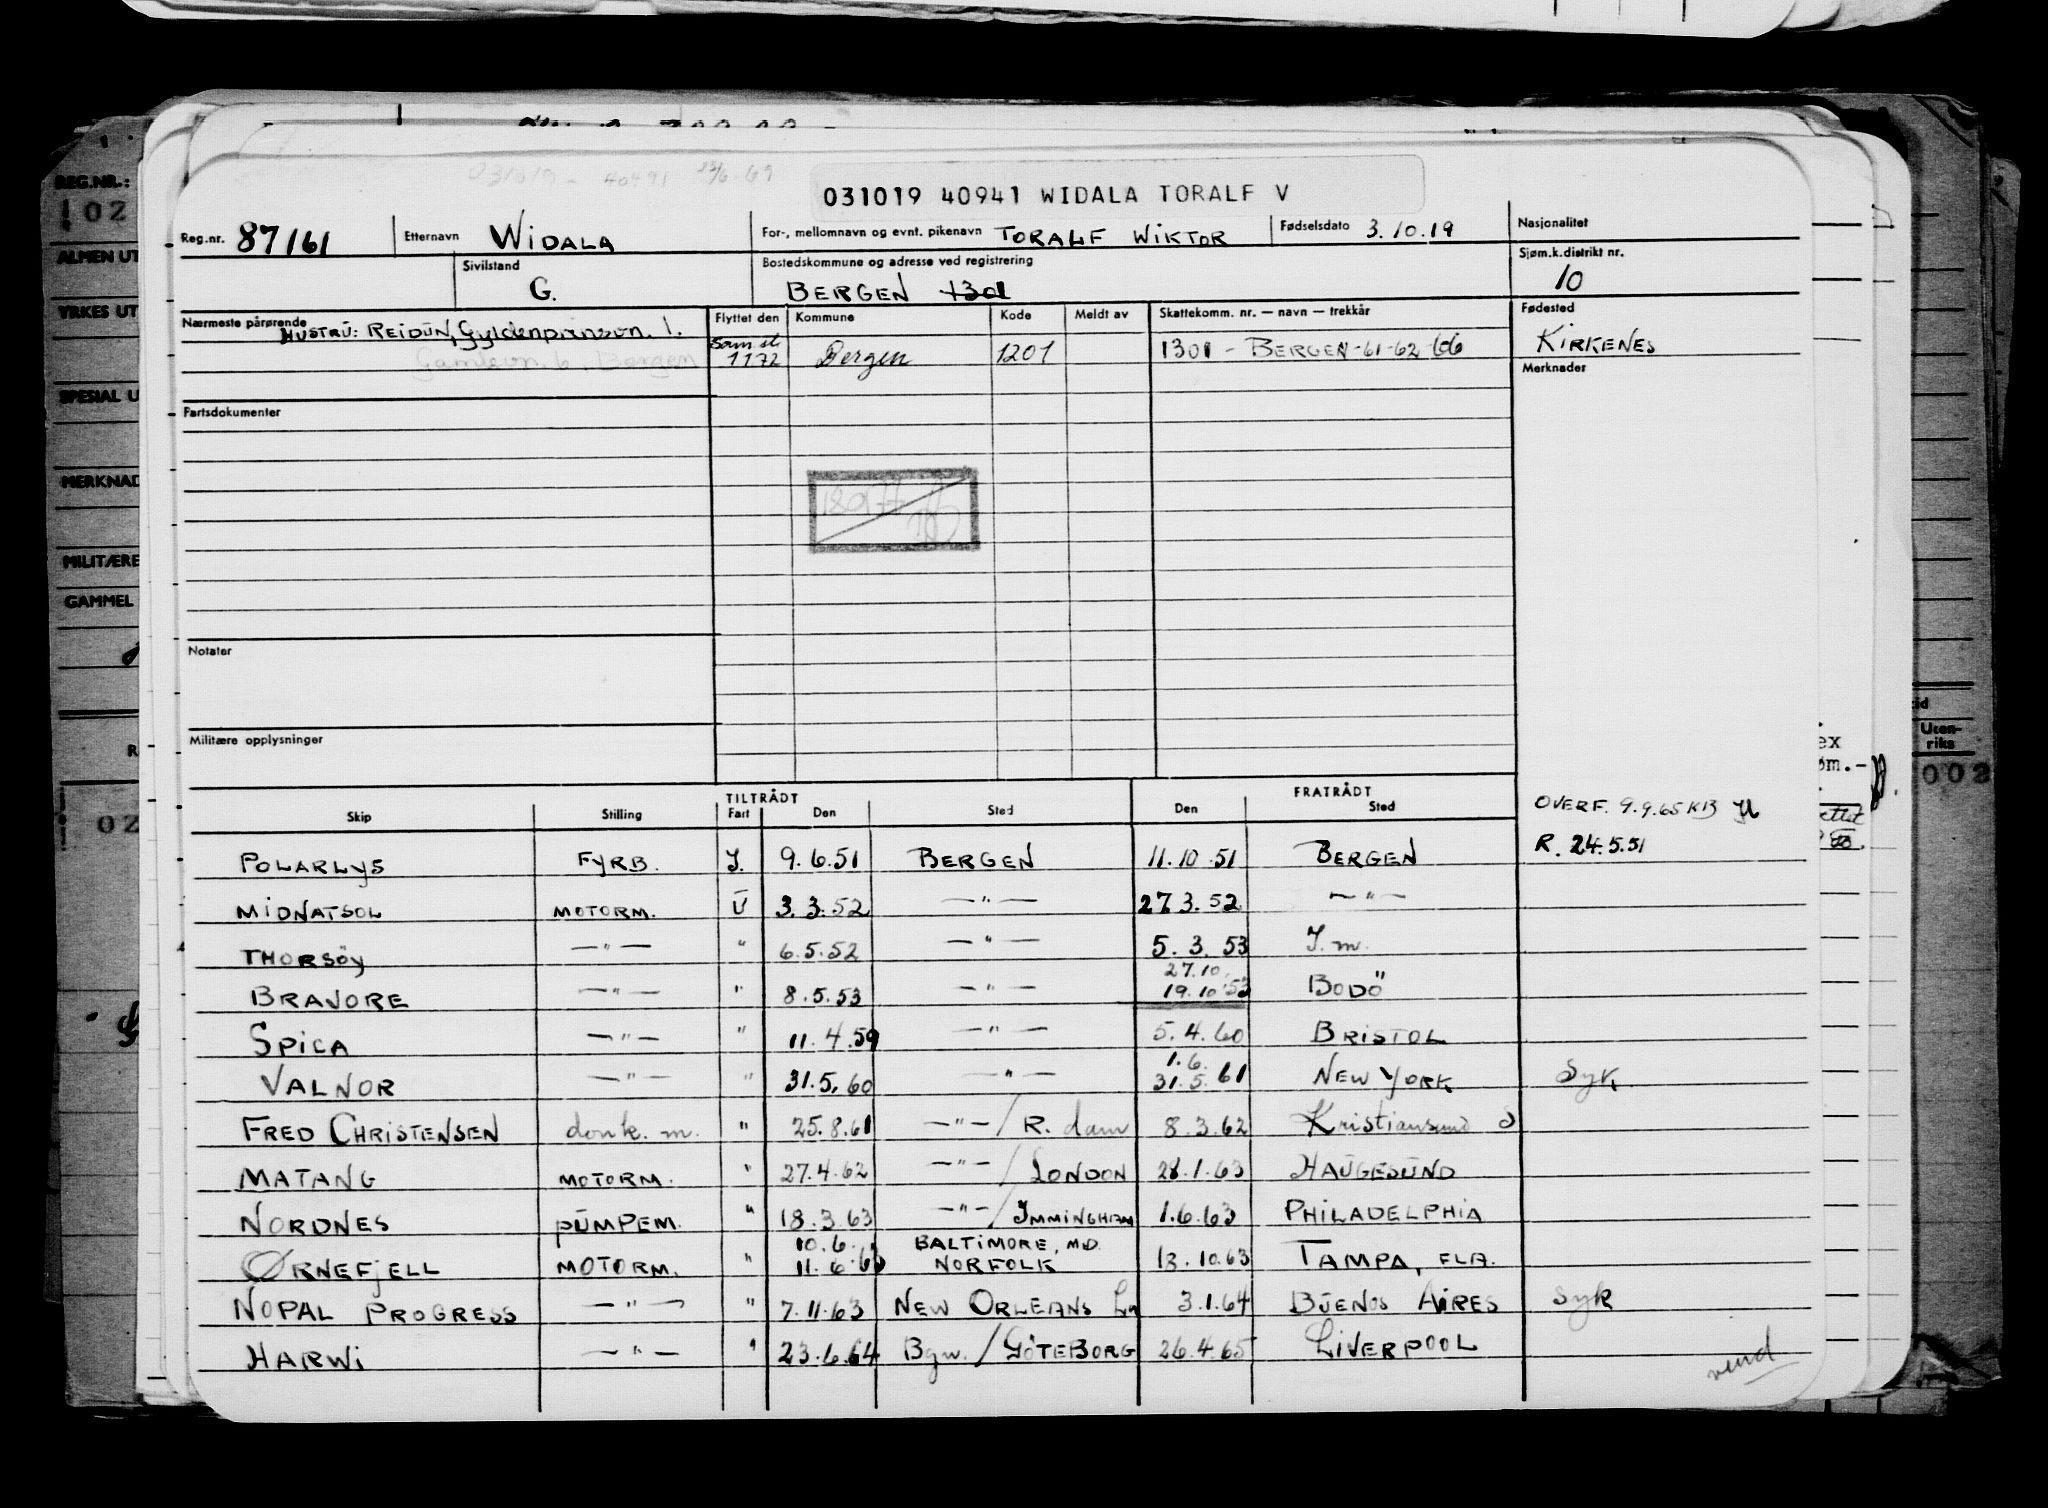 031019 - 40491 23/6-69
031019 40941 WIDALA TORALF V
Reg.nr. 87161 Etternavn WIDALA For-, mellomnavn og evnt. pikenavn TORALF WIKTOR Fødselsdato 3.10.19 Nasjonalitet
Sivilstand G. Bostedskommune og adresse ved registrering BERGEN 1301 Sjøm.k.distrikt nr. 10
Nærmeste pårørende HUSTRU: REIDUN, Gyldenprisson. 1. Flyttet den Kommune Kode Meldt av Skattekomm. nr. — navn — trekkår Fødested
Gamlevn. 6. Bergen 1172 Bergen 1201 1301 - BERGEN-61-62-66 KIRKENES
Merknader
Fartsdokumenter
Notater
Militære opplysninger
TILTRÅDT FRATRÅDT
Skip Stilling Fart Den Sted Den Sted OVERF. 9.9.65 KB
POLARLYS FYRB. I. 9.6.51 BERGEN 11.10.51 BERGEN R. 24.5.51
MIDNATSOL MOTORM. U 3.3.52 —"— 27.3.52 —"—
THORSÖY —"— " 6.5.52 —"— 5.3.53 I.m.
27.10.
BRAVORE —"— " 8.5.53 —"— 19.10.53 BODÖ
SPICA —"— " 11.4.59 —"— 5.4.60 BRISTOL
1.6.
VALNOR —"— " 31.5.60 —"— 31.5.61 NEW YORK Syk
FRED CHRISTENSEN donk.m. " 25.8.61 —"—/R.dam 8.3.62 Kristiansund S
MATANG MOTORM. " 27.4.62 —"—/LONDON 28.1.63 HAUGESUND
NORDNES PUMPEM. " 18.3.63 —"—/IMMINGHAM 1.6.63 PHILADELPHIA
10.6. BALTIMORE, MD.
ØRNEFJELL MOTORM. " 11.6.63 NORFOLK 13.10.63 TAMPA, FLA.
NOPAL PROGRESS —"— " 7.11.63 NEW ORLEANS La 3.1.64 BUENOS AIRES Syk
HARWI —"— " 23.6.64 Bgn./GÖTEBORG 26.4.65 LIVERPOOL
vend
REG.NR.:
102
ALMEN UT
YRKES UT
SPESIAL U
MERKNAD
MILITÆRE
GAMMEL
R
02
ex
øm.-
Uten-
riks
002